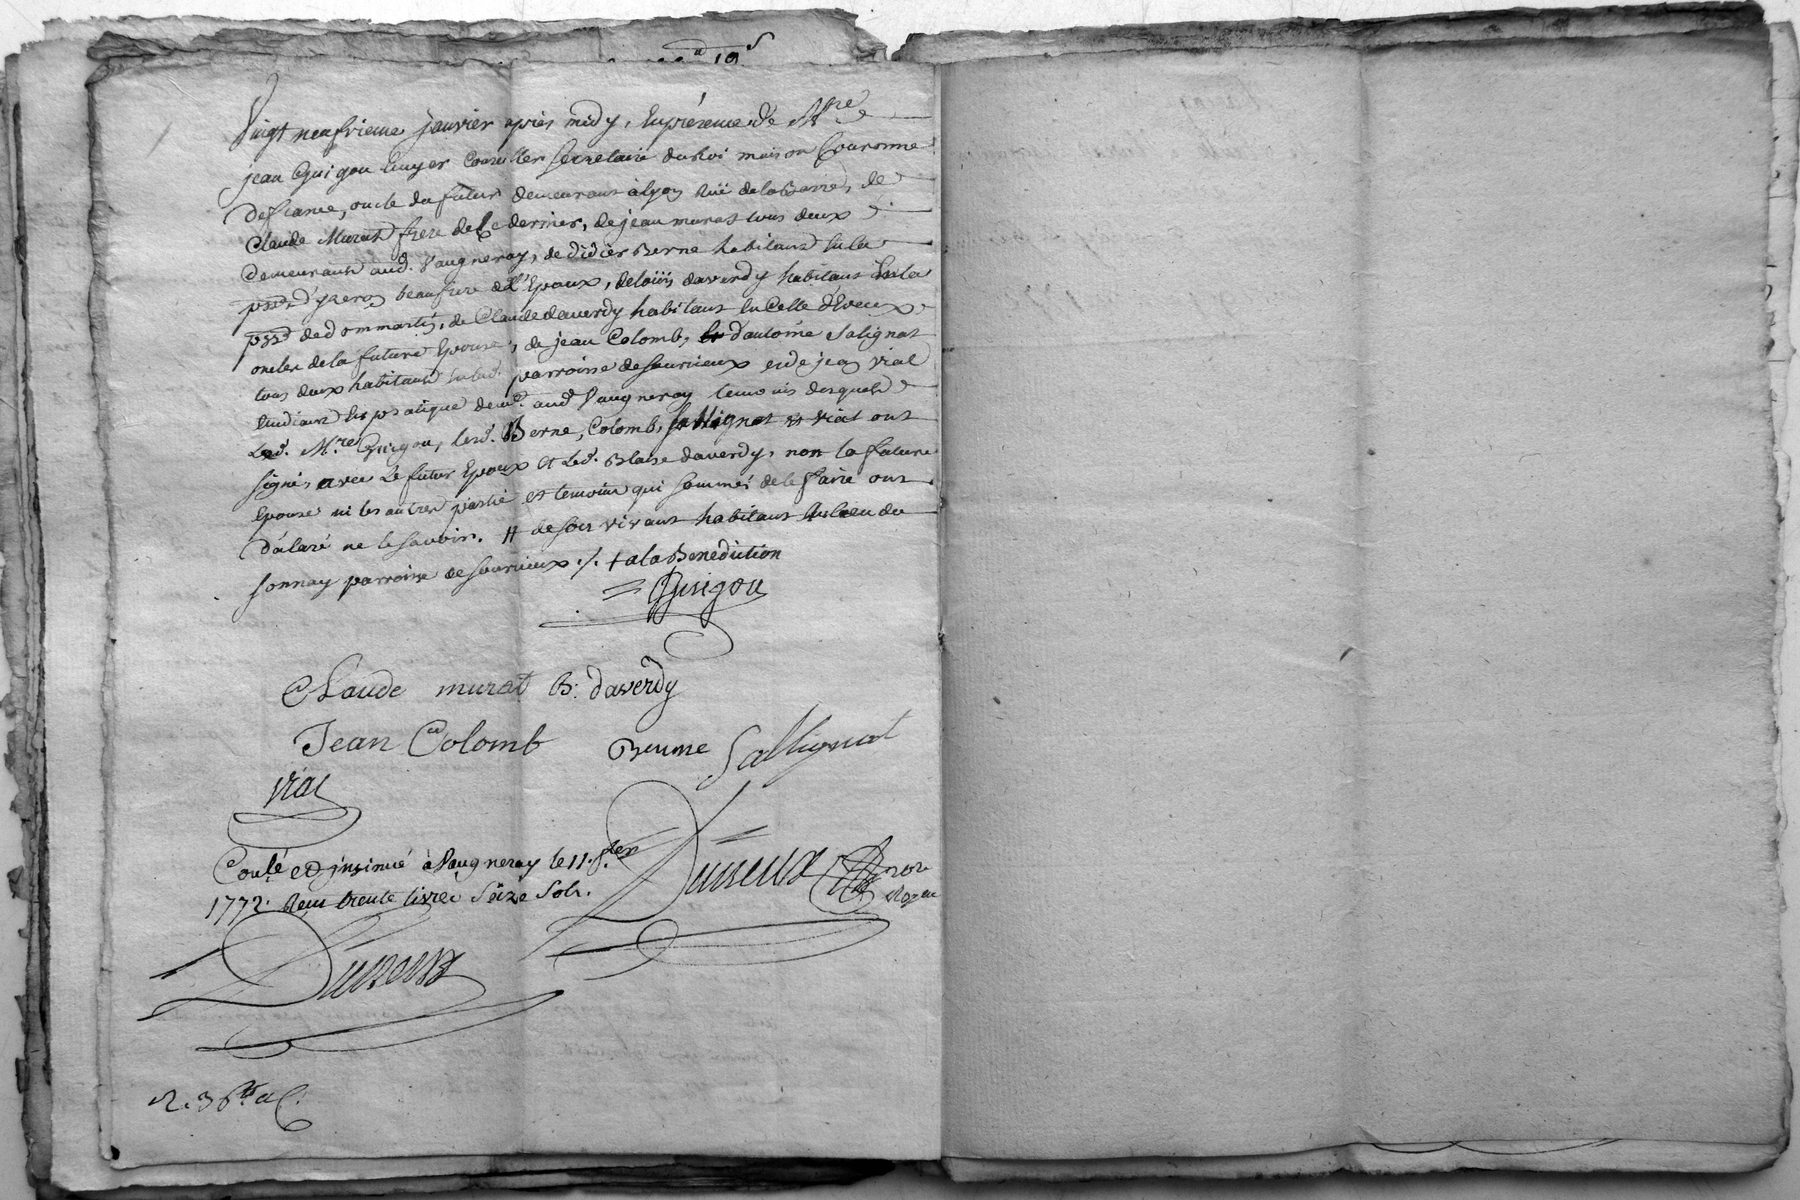 Vingt neufvieme janvier apres midy, En presence de Mre
jean Guigou Ecuyer Conseiller secretaire du Roi maison Couronne
de france, oncle du futur demeurant à lyon Ruë de la Barre, de
Claude Murat frere de ce dernier, de jean murat tous deux
demeurants aud. Vaugneray, de didier Berne habitant En la
psse d'yzeron beaufrere de l'Epoux, de loüis daverdy habitant En la
psse de dommartin, de Claude daverdy habitant En Celle d'Eveux
oncles de la future Epouse, de jean Colomb, Et d'antoine Salignat
tous deux habitants En lad. parroisse de sourcieux et de jean vial
Etudiant En pratique demt. aud Vaugneray temoins desquels
Led. Mre Guigou, lesd. Berne, Colomb, Sallignat et vial ont
signé, avec Le futur Epoux et Led. Blaise daverdy, non la future
Epouse ni les autres partie et temoins qui sommés de le faire ont
déclaré ne le savoir. # de son vivant habitant Au lieu du
sonnay parroisse de sourcieux ./. + a la Benediction
Guigou
Claude murat B: daverdy
Jean Colomb Berne Sallignat
vial
Conlé et insinué à Vaugneray le 11. fer
1772. Reçu trente livres Seize Sols.
Dusseux
Dusseux nore
Royal
R. 36